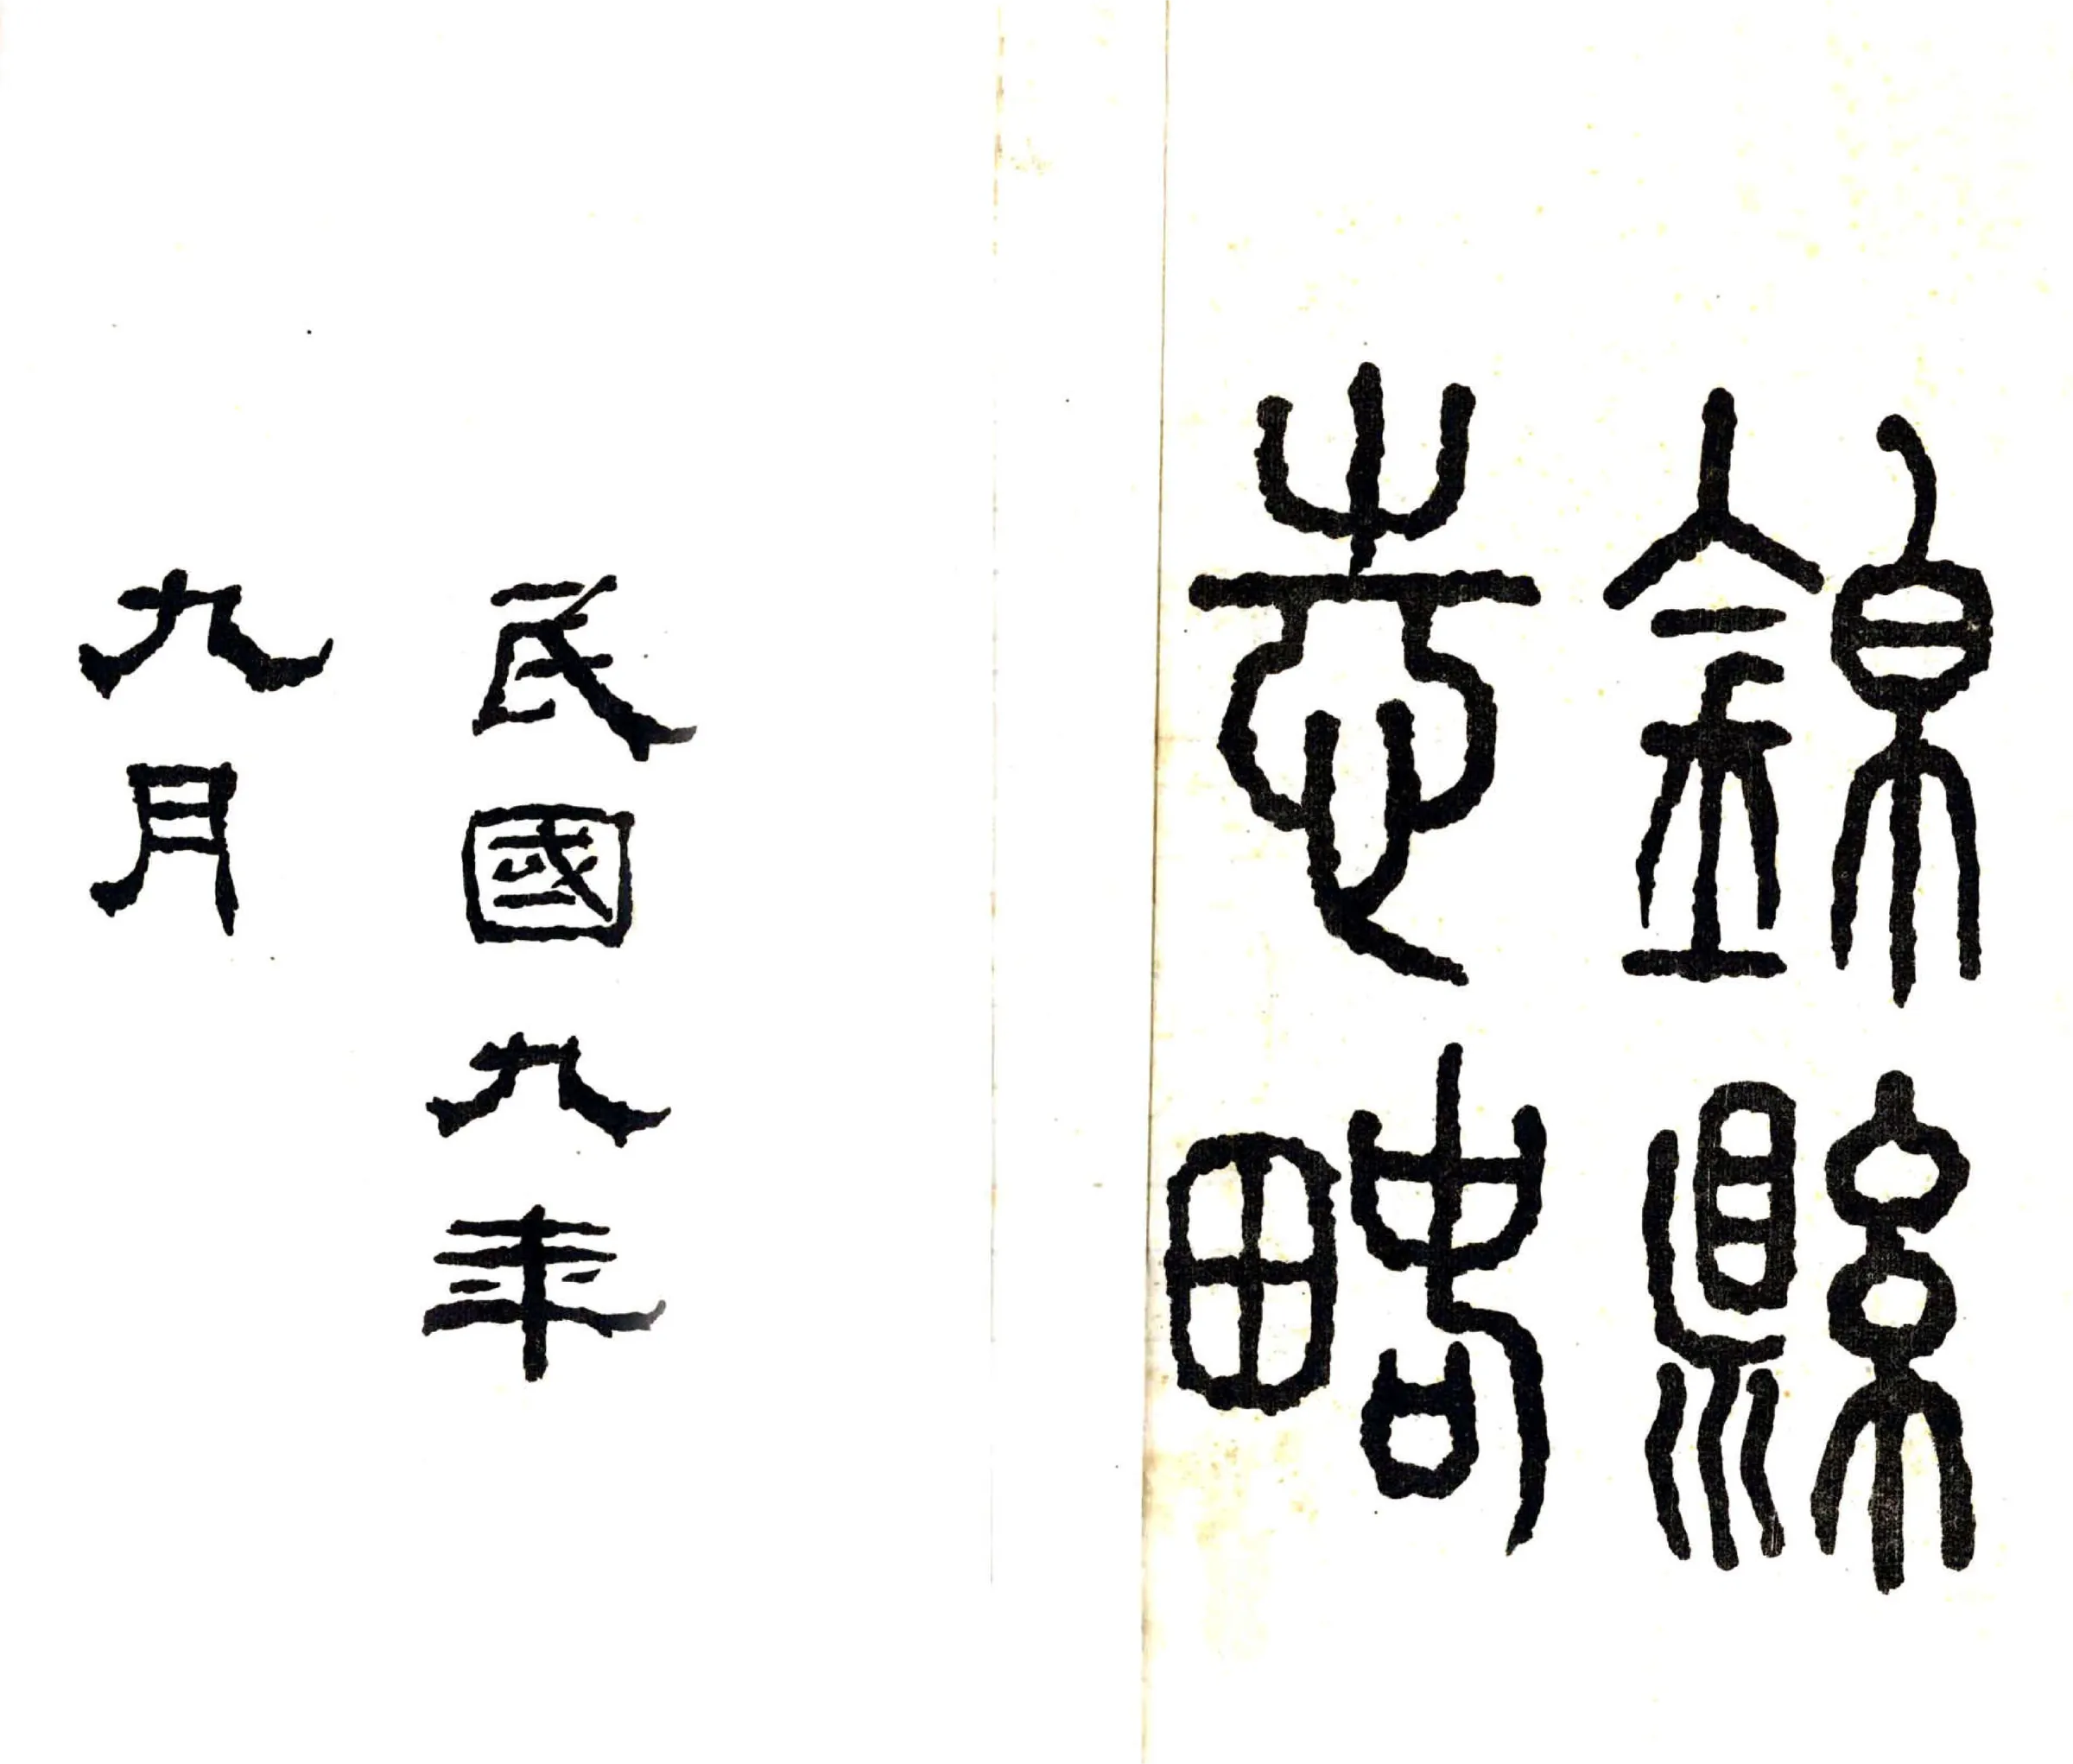 錦縣
志略
民國九年
九月